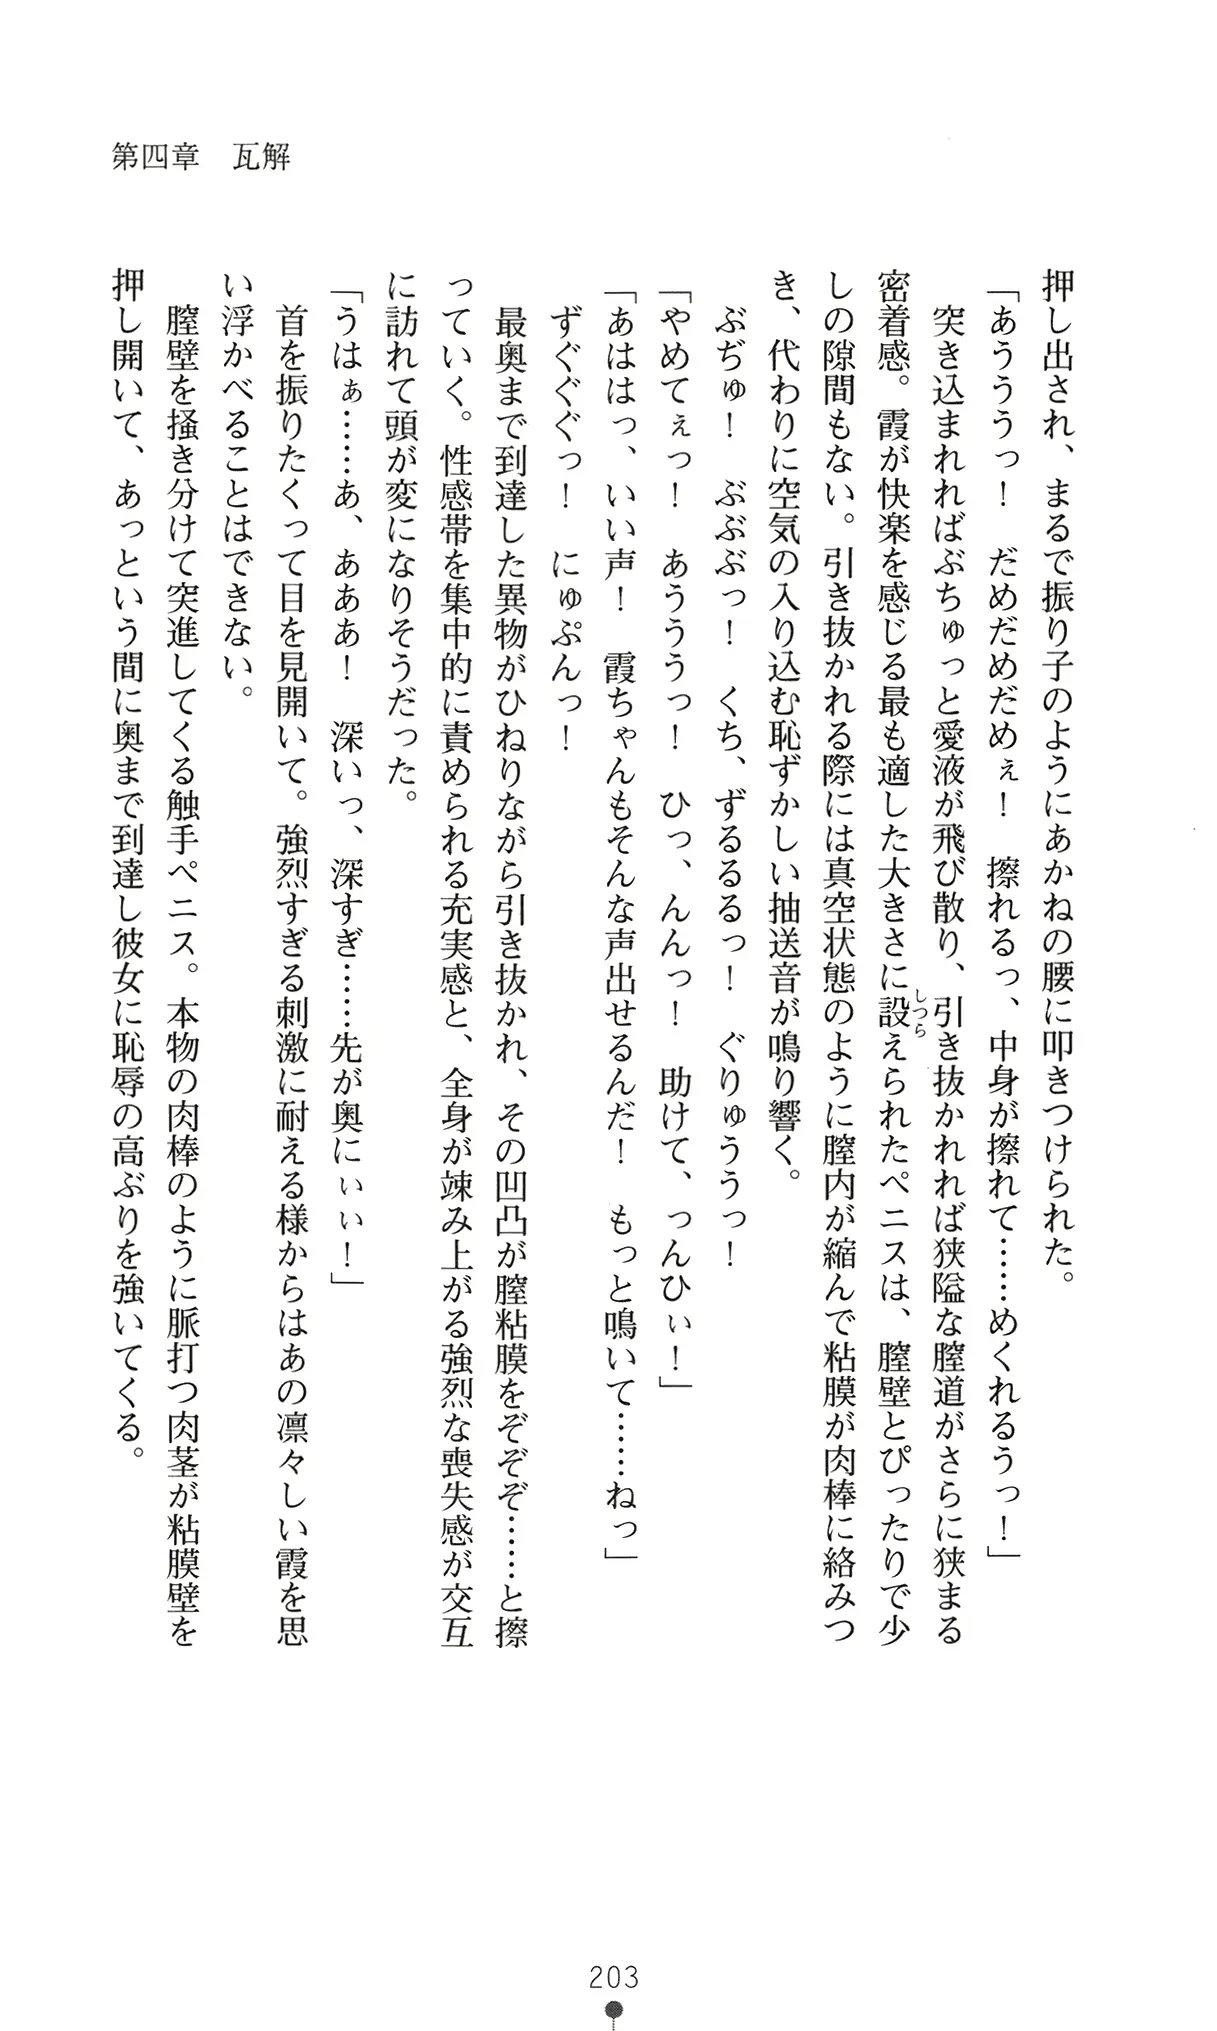 第四章　瓦解
押し出され、まるで振り子のようにあかねの腰に叩きつけられた。
「あうううっ！　だめだめだめぇ！　擦れるっ、中身が擦れて……めくれるうっ！」
　突き込まれればぶちゅっと愛液が飛び散り、引き抜かれれば狭隘な膣道がさらに狭まる
密着感。霞が快楽を感じる最も適した大きさに設えられたペニスは、膣壁とぴったりで少
しつら
しの隙間もない。引き抜かれる際には真空状態のように膣内が縮んで粘膜が肉棒に絡みつ
き、代わりに空気の入り込む恥ずかしい抽送音が鳴り響く。
　ぶぢゅ！　ぶぶぶっ！　くち、ずるるるっ！　ぐりゅううっ！
「やめてぇっ！　あうううっ！　ひっ、んんっ！　助けて、っんひぃ！」
「あははっ、いい声！　霞ちゃんもそんな声出せるんだ！　もっと鳴いて……ねっ」
　ずぐぐぐっ！　にゅぷんっ！
　最奥まで到達した異物がひねりながら引き抜かれ、その凹凸が膣粘膜をぞぞぞぞ……と擦
っていく。性感帯を集中的に責められる充実感と、全身が竦み上がる強烈な喪失感が交互
に訪れて頭が変になりそうだった。
「うはぁ……あ、あああ！　深いっ、深すぎ……先が奥にぃぃ！」
　首を振りたくって目を見開いて。強烈すぎる刺激に耐える様からはあの凛々しい霞を思
い浮かべることはできない。
　膣壁を掻き分けて突進してくる触手ペニス。本物の肉棒のように脈打つ肉茎が粘膜壁を
押し開いて、あっという間に奥まで到達し彼女に恥辱の高ぶりを強いてくる。
203